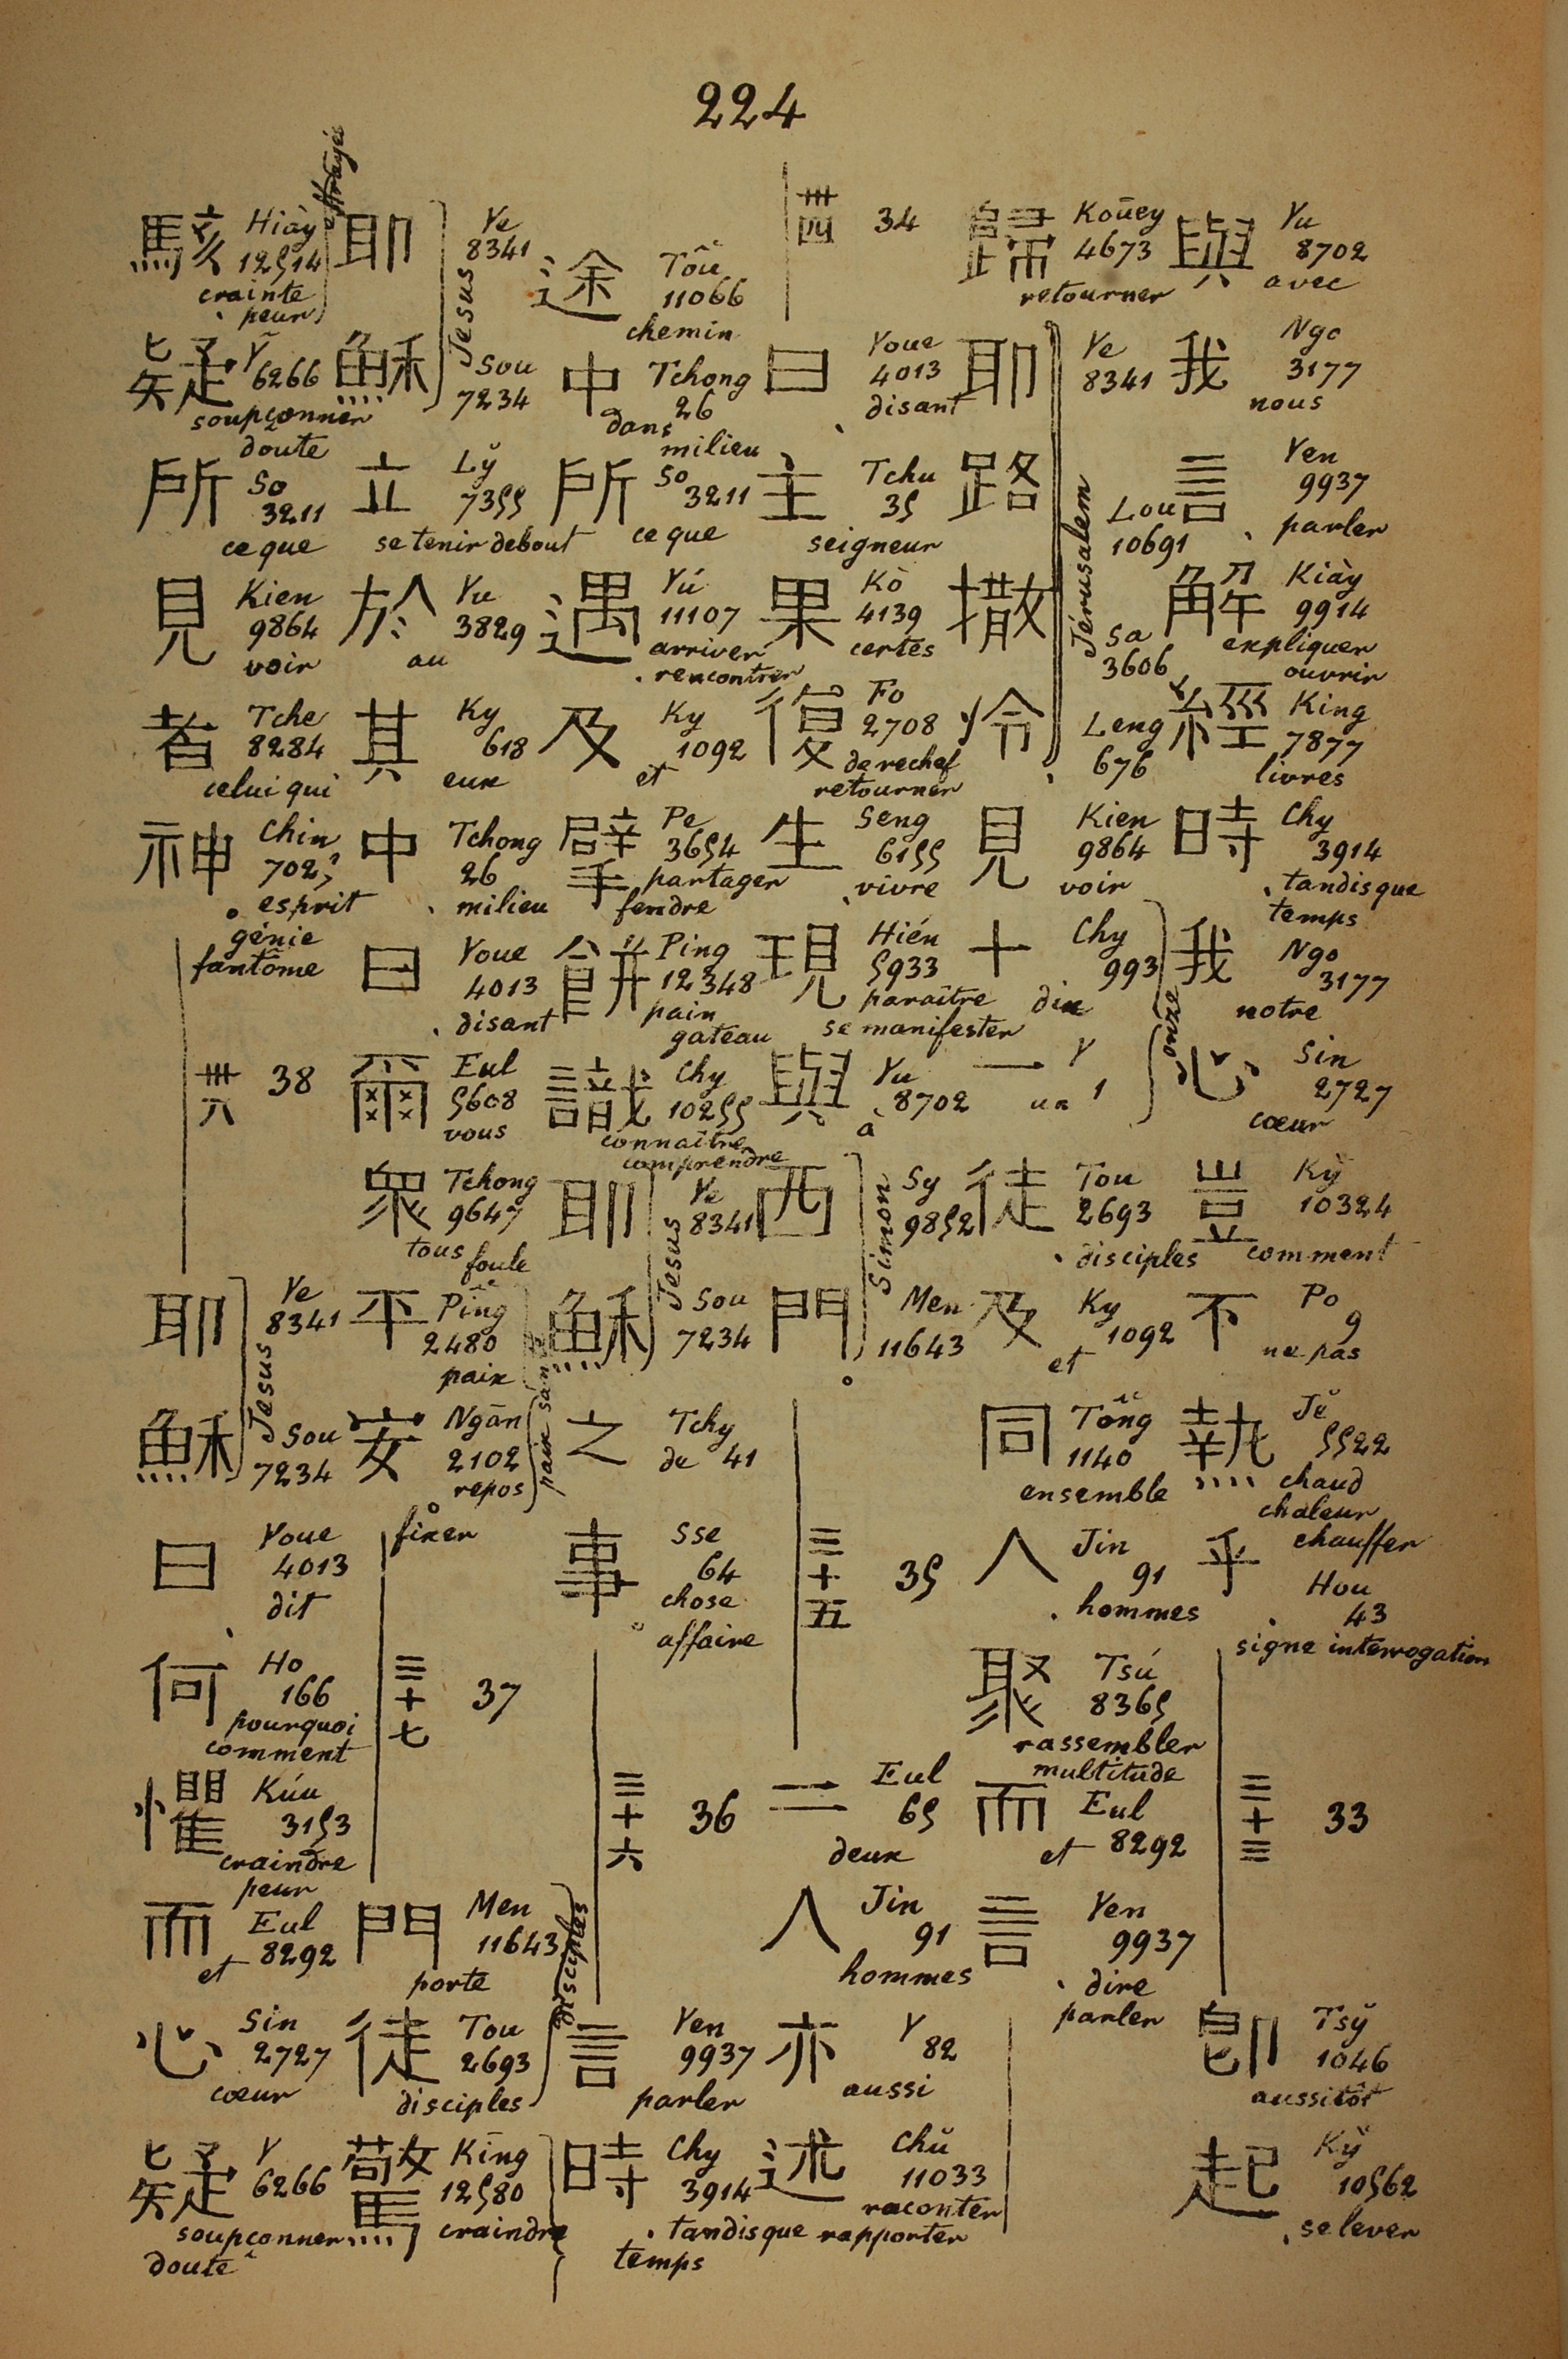 224
與 Yu
8702
avec
我 Ngo
3177
nous
言 Yen
9937
parler
解 Kiày
9914
expliquer
ouvrir
經 King
7877
livres
時 Chy
3914
tandis que
temps
我 Ngo
3177
notre
心 Sin
2727
cœur
豈 Kỹ
10324
comment
不 Po
9
ne pas
熱 Jě
5522
chaud
chaleur
chauffer
乎 Hou
43
signe interrogation
三十三 33
卽 Tsy̆
1046
aussitôt
起 Ky̆
10562
se lever
歸 Koūey
4673
retourner
耶 Ye
8341
路 Lou
10691
撒 Sa
3606
冷 Leng
676
Jérusalem
見 Kien
9864
voir
十 Chy
993
dix
一 Y
1
un
onze
徒 Tou
2693
disciples
及 Ky
1092
et
同 Tông
1140
ensemble
人 Jin
91
hommes
聚 Tsú
8365
rassembler
multitude
而 Eul
8292
et
言 Yen
9937
dire
parler
卅四 34
曰 Youe
4013
disant
主 Tchu
35
seigneur
果 Kò
4139
certes
復 Fo
2708
derechef
retourner
生 Seng
6155
vivre
現 Hién
5933
paraître
se manifester
與 Yu
8702
à
西 Sy
9852
門 Men
11643
Simon
三十五 35
二 Eul
65
deux
人 Jin
91
hommes
亦 Y
82
aussi
述 Chŭ
11033
raconter
rapporter
途 Toû
11066
chemin
中 Tchong
26
dans
milieu
所 So
3211
ce que
遇 Yú
11107
arriver
rencontrer
及 Ky
1092
et
擘 Pe
3654
partager
fendre
餅 Ping
12348
pain
gateau
識 Chy
10255
connaître
comprendre
耶 Ye
8341
穌 Sou
7234
Jesus
之 Tchy
de 41
事 Sse
64
chose
affaire
三十六 36
言 Yen
9937
parler
時 Chy
3914
tandis que
temps
耶 Ye
8341
穌 Sou
7234
Jesus
立 Ly̆
7355
se tenir debout
於 Yu
3829
au
其 Ky
618
eux
中 Tchong
26
milieu
曰 Youe
4013
disant
爾 Eul
5608
vous
衆 Tchong
9647
tous
foule
平 Pîng
2480
paix
安 Ngān
2102
repos
fixer
三十七 37
門 Men
11643
porte
徒 Tou
2693
disciples
disciples
驚 Kīng
12580
craindre
駭 Hiày
12514
crainte
peur
effrayé
疑 Y
6266
soupçonner
doute
所 So
3211
ce que
見 Kien
9864
voir
者 Tche
8284
celui qui
神 Chin
esprit
génie
fantôme
卅八 38
耶 Ye
8341
穌 Sou
7234
Jesus
曰 Youe
4013
dit
何 Ho
166
pourquoi
comment
懼 Kúu
3153
craindre
peur
而 Eul
8292
et
心 Sin
2727
cœur
疑 Y
6266
soupçonner
doute